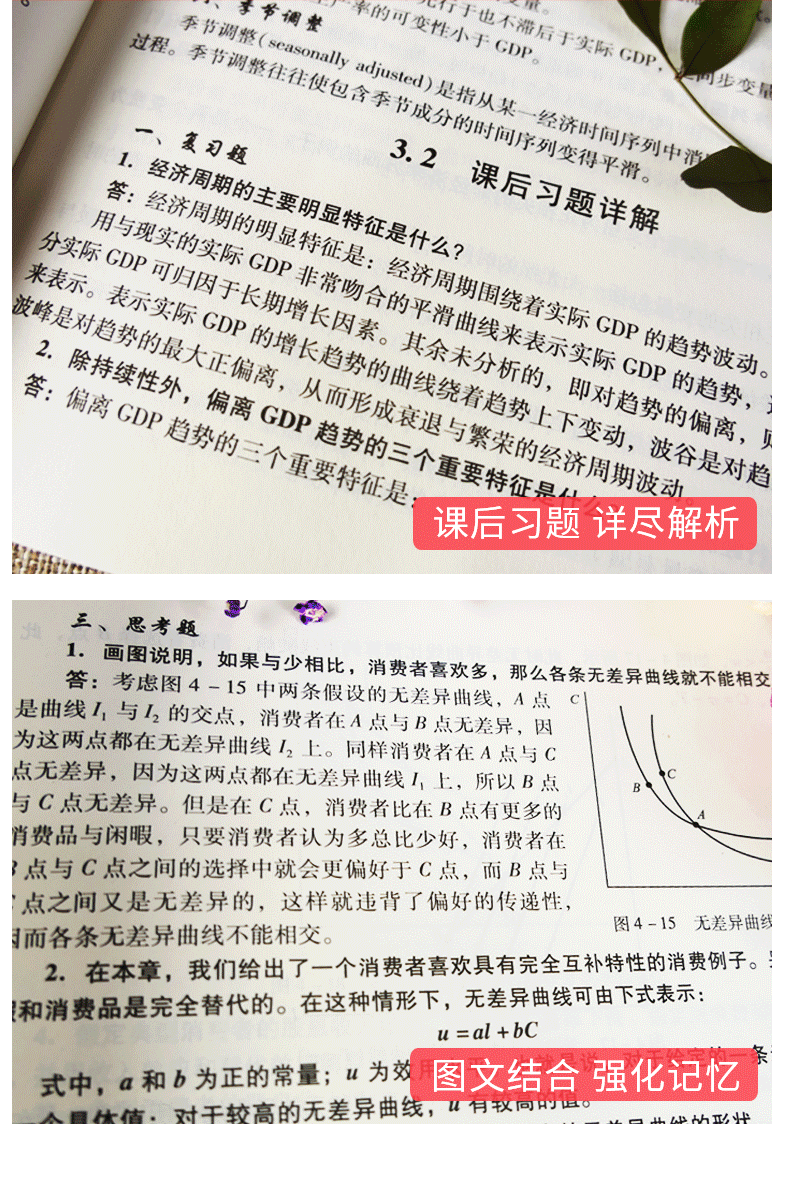 季节调整
先行于也不滞后于实际 GDP,
生产率的可变性小于 GDP。
季节调整(seasonally adjusted)是指从某一经济时间序列中消
过程。季节调整往往使包含季节成分的时间序列变得平滑。
3.2 课后习题详解
一、复习题
1. 经济周期的主要明显特征是什么?
答:经济周期的明显特征是:经济周期围绕着实际 GDP 的趋势波动。
用与现实的实际 GDP 非常吻合的平滑曲线来表示实际 GDP 的趋势,
分实际 GDP 可归因于长期增长因素。其余未分析的,即对趋势的偏离,
来表示。表示实际 GDP 的增长趋势的曲线绕着趋势上下变动,波谷是对趋
波峰是对趋势的最大正偏离,从而形成衰退与繁荣的经济周期波动。
2. 除持续性外,偏离 GDP 趋势的三个重要特征是什么
答:偏离 GDP 趋势的三个重要特征是:
课后习题 详尽解析
三、思考题
1. 画图说明,如果与少相比,消费者喜欢多,那么各条无差异曲线就不能相交
答:考虑图 4-15 中两条假设的无差异曲线,A 点
是曲线 I₁ 与 I₂ 的交点,消费者在 A 点与 B 点无差异,因
为这两点都在无差异曲线 I₂ 上。同样消费者在 A 点与 C
点无差异,因为这两点都在无差异曲线 I₁ 上,所以 B 点
与 C 点无差异。但是在 C 点,消费者比在 B 点有更多的
消费品与闲暇,只要消费者认为多总比少好,消费者在
B 点与 C 点之间的选择中就会更偏好于 C 点,而 B 点与
点之间又是无差异的,这样就违背了偏好的传递性,
因而各条无差异曲线不能相交。
C
B
C
A
图 4-15 无差异曲线
2. 在本章,我们给出了一个消费者喜欢具有完全互补特性的消费例子。
和消费品是完全替代的。在这种情形下,无差异曲线可由下式表示:
u=al+bC
式中,a 和 b 为正的常量;u 为效用
对于给定的一条
图文结合 强化记忆
一个具体值;对于较高的无差异曲线,u 有较高的值。